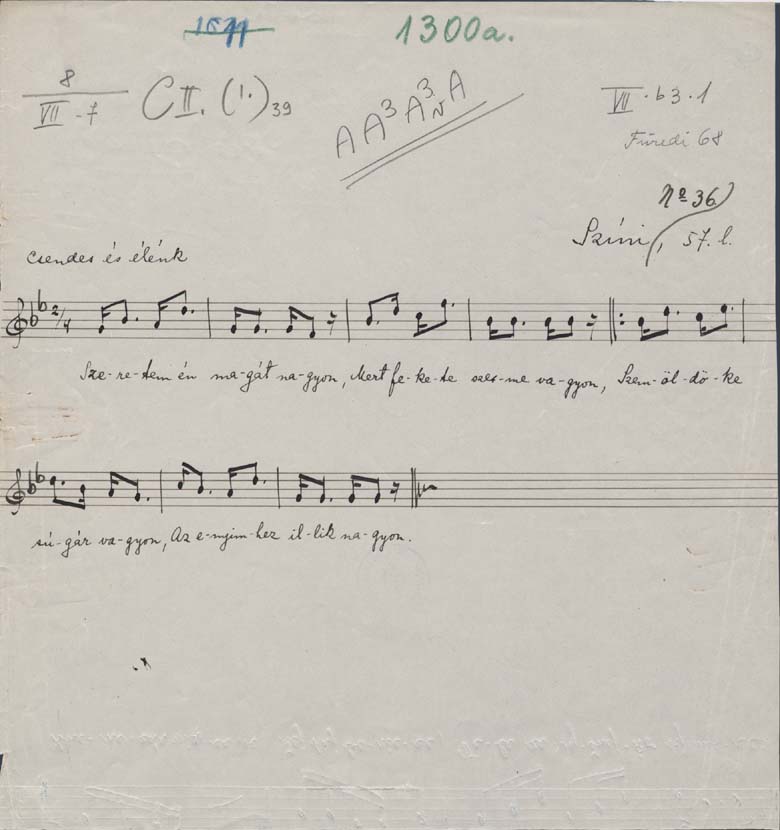 1300a.
8
VII - 7
CII. (1.) 39
A A³ A³ₙ A
VII. b3. 1
Füredi 68
Nº 36
Színi, 57. l.
Csendes és élénk
2/4
Sze-re-tem én ma-gát na-gyon, Mert fe-ke-te szes-me va-gyon, Szem-öl-dö-ke
sú-gár va-gyon, Az e-nyim-hez il-lik na-gyon.